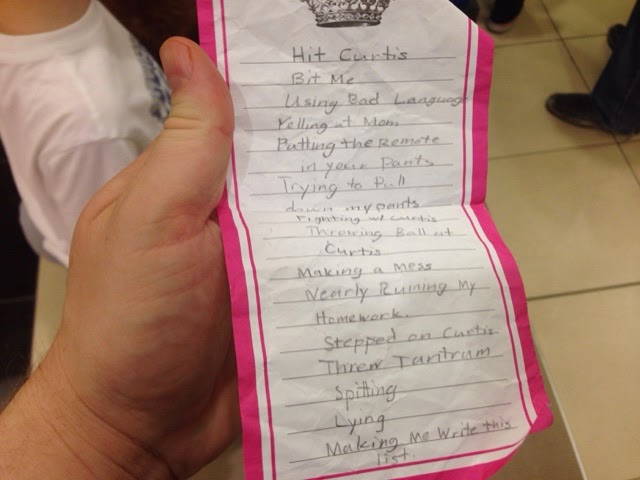 Hit Curtis
Bit Me
Using Bad Language
Yelling at Mom
Putting the Remote
in your Pants
Trying to Pull
down my pants
Fighting w/ Curtis
Throwing Ball at
Curtis
Making a Mess
Nearly Ruining My
Homework.
Stepped on Curtis
Threw Tantrum
Spitting
Lying
Making Me Write this
list.